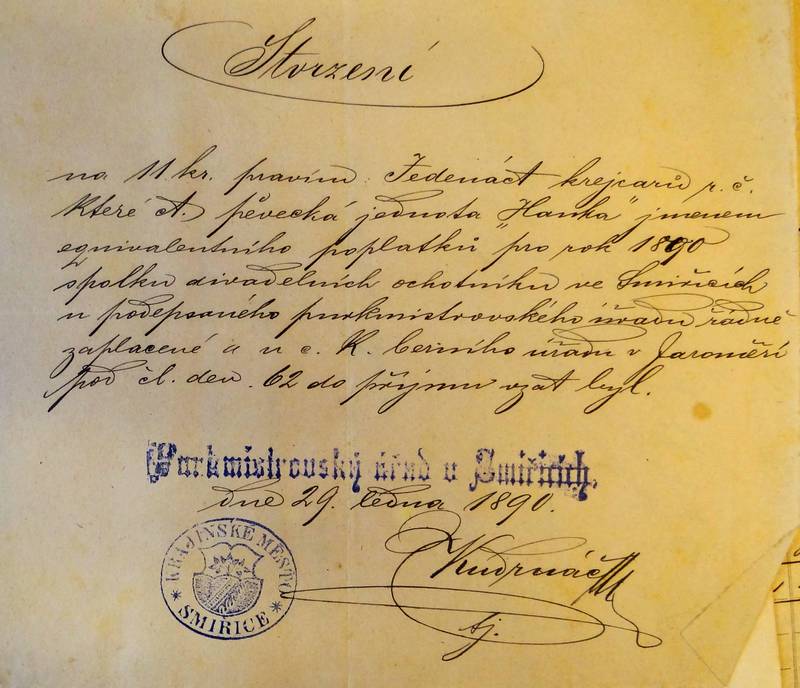 Stvrzení
na 11 kr. pravím: Jedenáct krejcarů r. č.
které ct. pěvecká jednota „Hanka" jménem
equivalentního poplatků pro rok 1890
spolku divadelních ochotníku ve Smiřicích
u podepsaného purkmistrovského úřadu řádně
zaplacené a u c. k. berního úřadu v Jaroměři
pod čl. den. 62 do příjmu vzat byl.
Purkmistrovský úřad v Smiřicích.
dne 29. ledna 1890.
KRAJINSKÉ MĚSTO
* SMIŘICE *
Kudrnáč